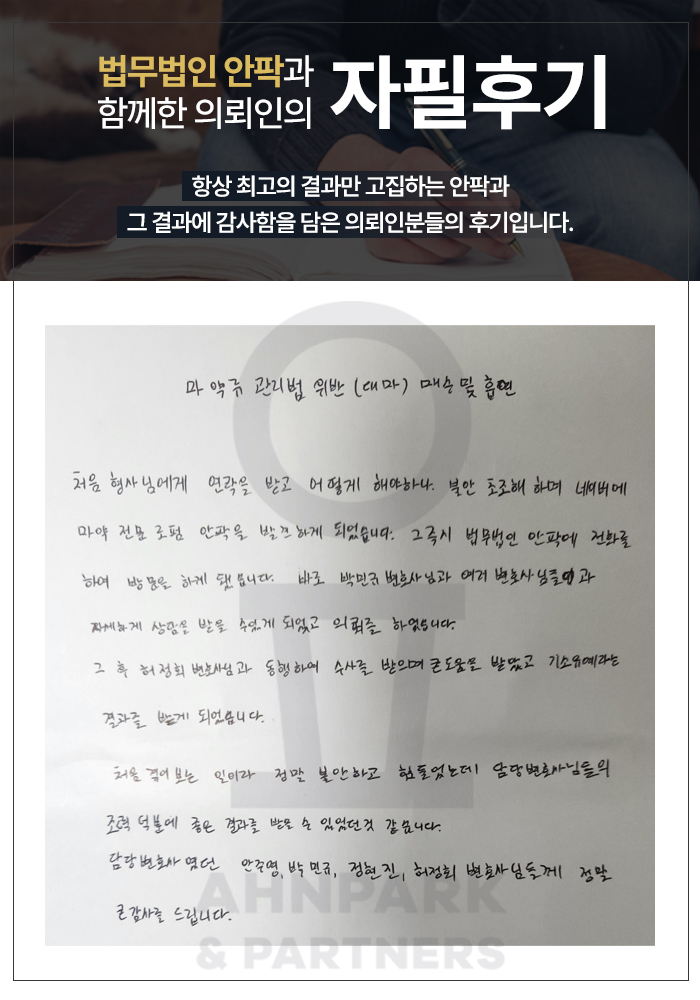 법무법인 안팍과
함께한 의뢰인의
자필후기
항상 최고의 결과만 고집하는 안팍과
그 결과에 감사함을 담은 의뢰인분들의 후기입니다.
마약류 관리법 위반 (대마) 매수 및 흡연
처음 형사님에게 연락을 받고 어떻게 해야하나. 불안 초조해 하며 네이버에
마약 전문 로펌 안팍을 발견하게 되었습니다. 그즉시 법무법인 안팍에 전화를
하여 방문을 하게 됐습니다. 바로 박민규 변호사님과 여러 변호사님들과
자세하게 상담을 받을 수있게 되었고 의뢰를 하였습니다.
그 후 허정회 변호사님과 동행하여 수사를 받으며 큰도움을 받았고 기소유예라는
결과를 받게 되었습니다.
처음 겪어보는 일이라 정말 불안하고 힘들었는데 담당변호사님들의
조력 덕분에 좋은 결과를 받을 수 있었던것 같습니다.
담당변호사 였던 안주영, 박민규, 정현진, 허정회 변호사님들께 정말
큰감사를 드립니다.
AHNPARK
& PARTNERS